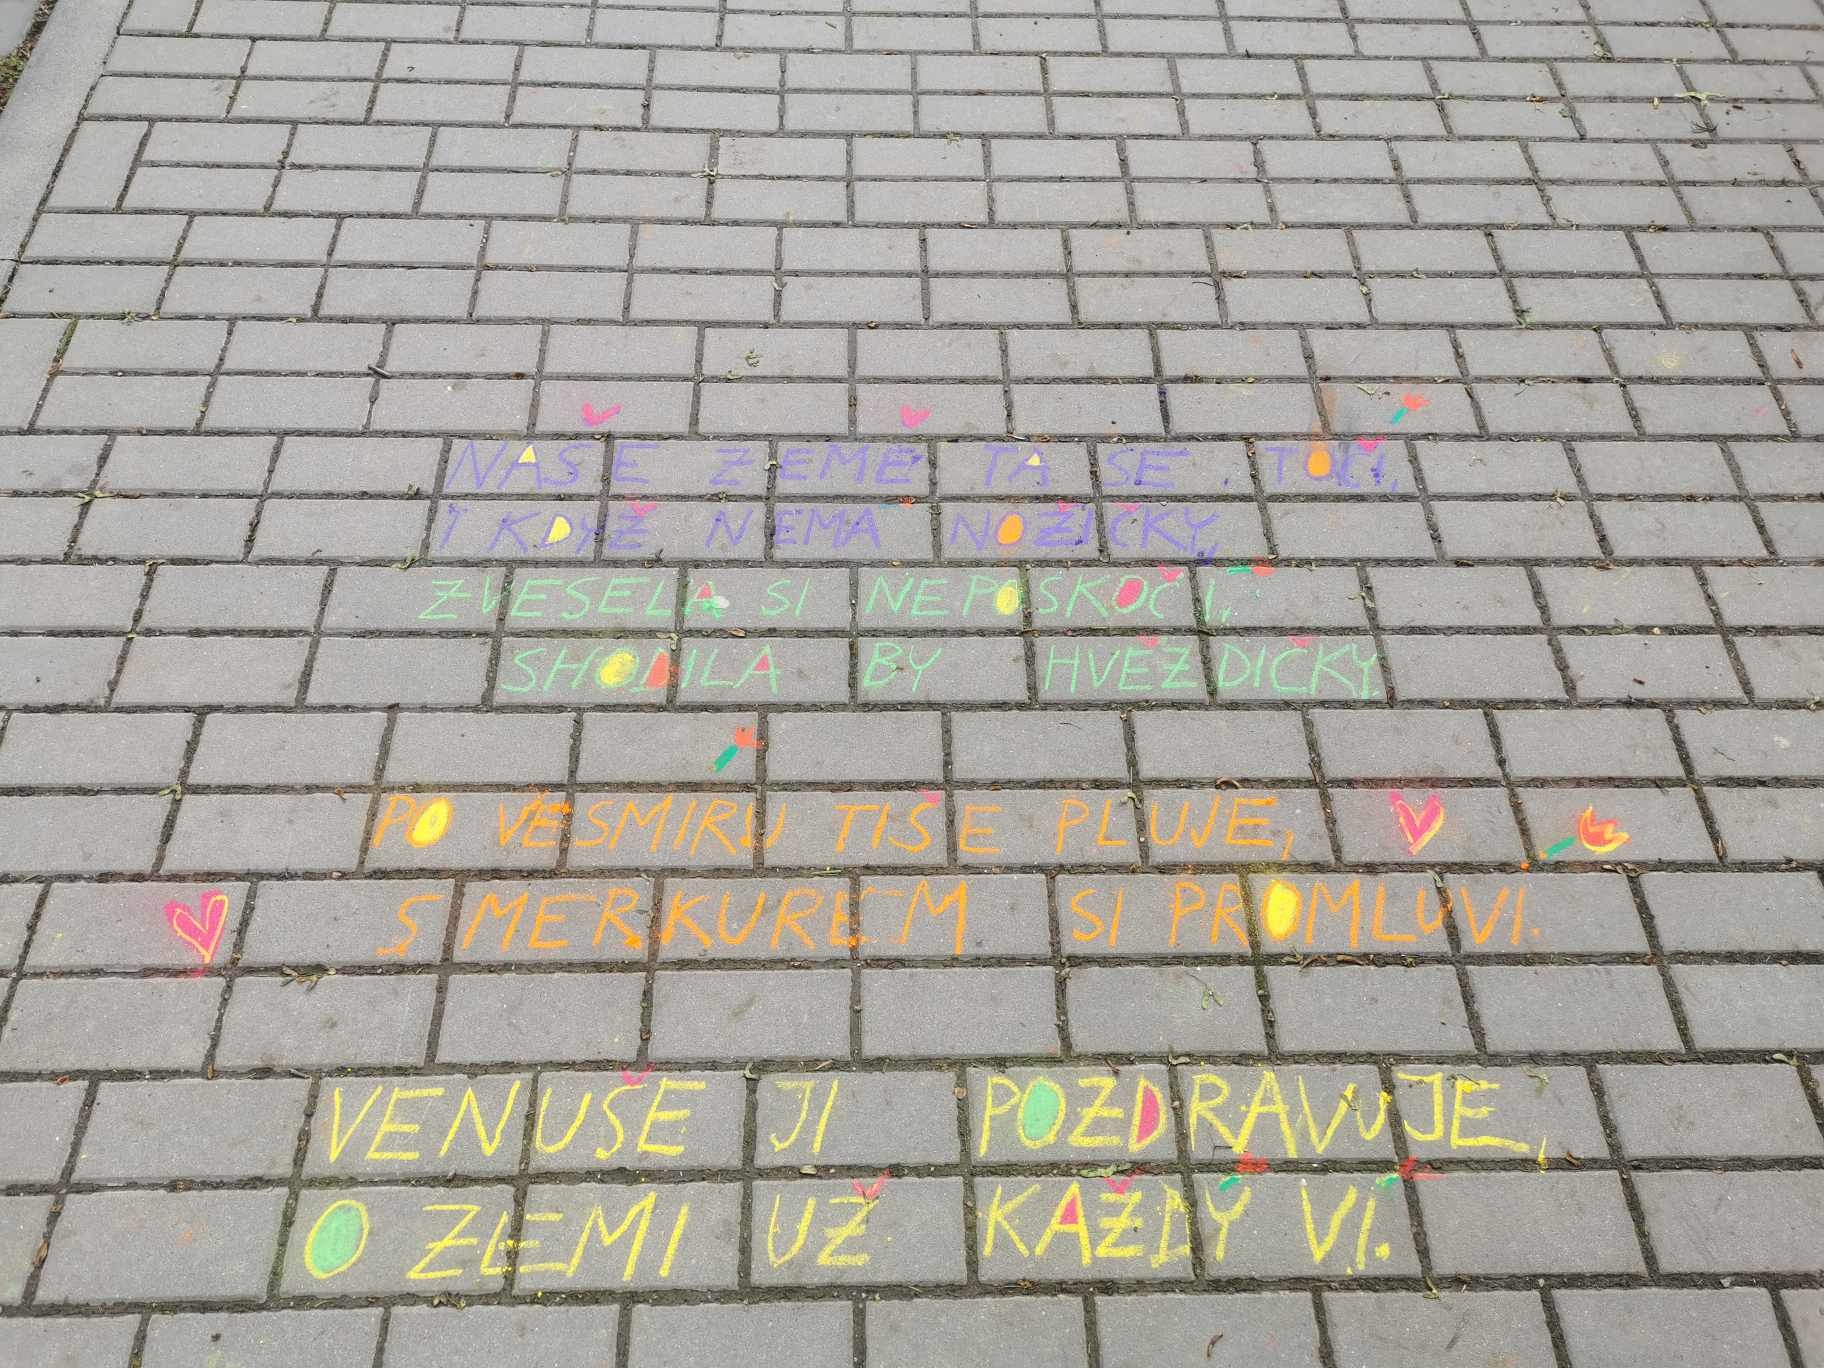 NAŠE ZEMĚ TA SE TOČÍ,
I KDYŽ NEMÁ NOŽIČKY,
ZVESELA SI NEPOSKOČÍ,
SHODILA BY HVĚZDIČKY.
PO VESMÍRU TIŠE PLUJE,
S MERKUREM SI PROMLUVÍ.
VENUŠE JI POZDRAVUJE,
O ZEMI UŽ KAŽDÝ VÍ.